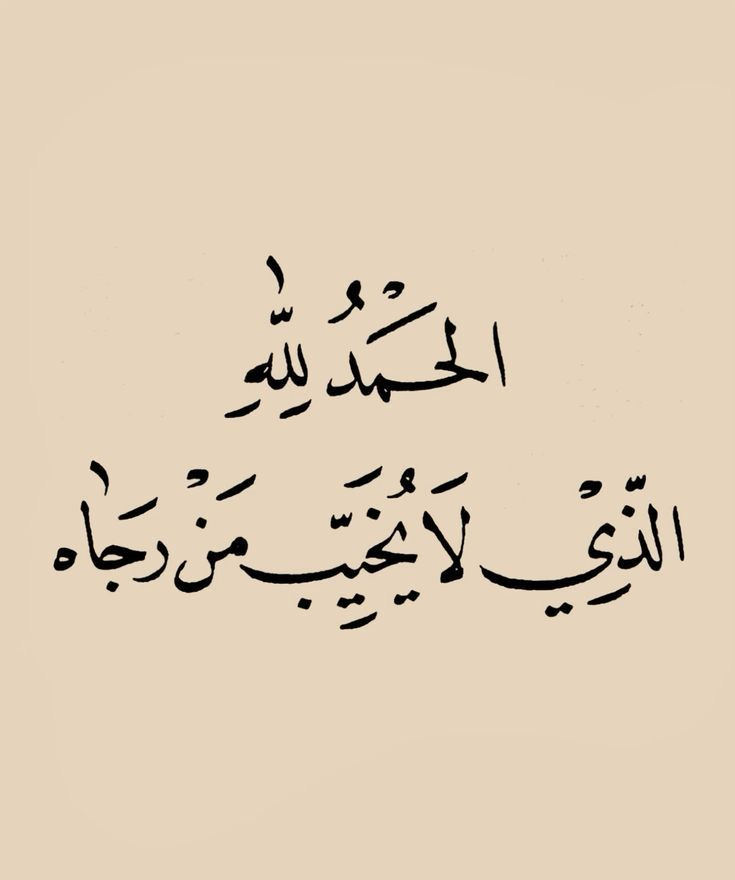 الحَمْدُ لِلّٰهِ
الَّذِيْ لَا يُخَيِّب مَنْ رَجَاه